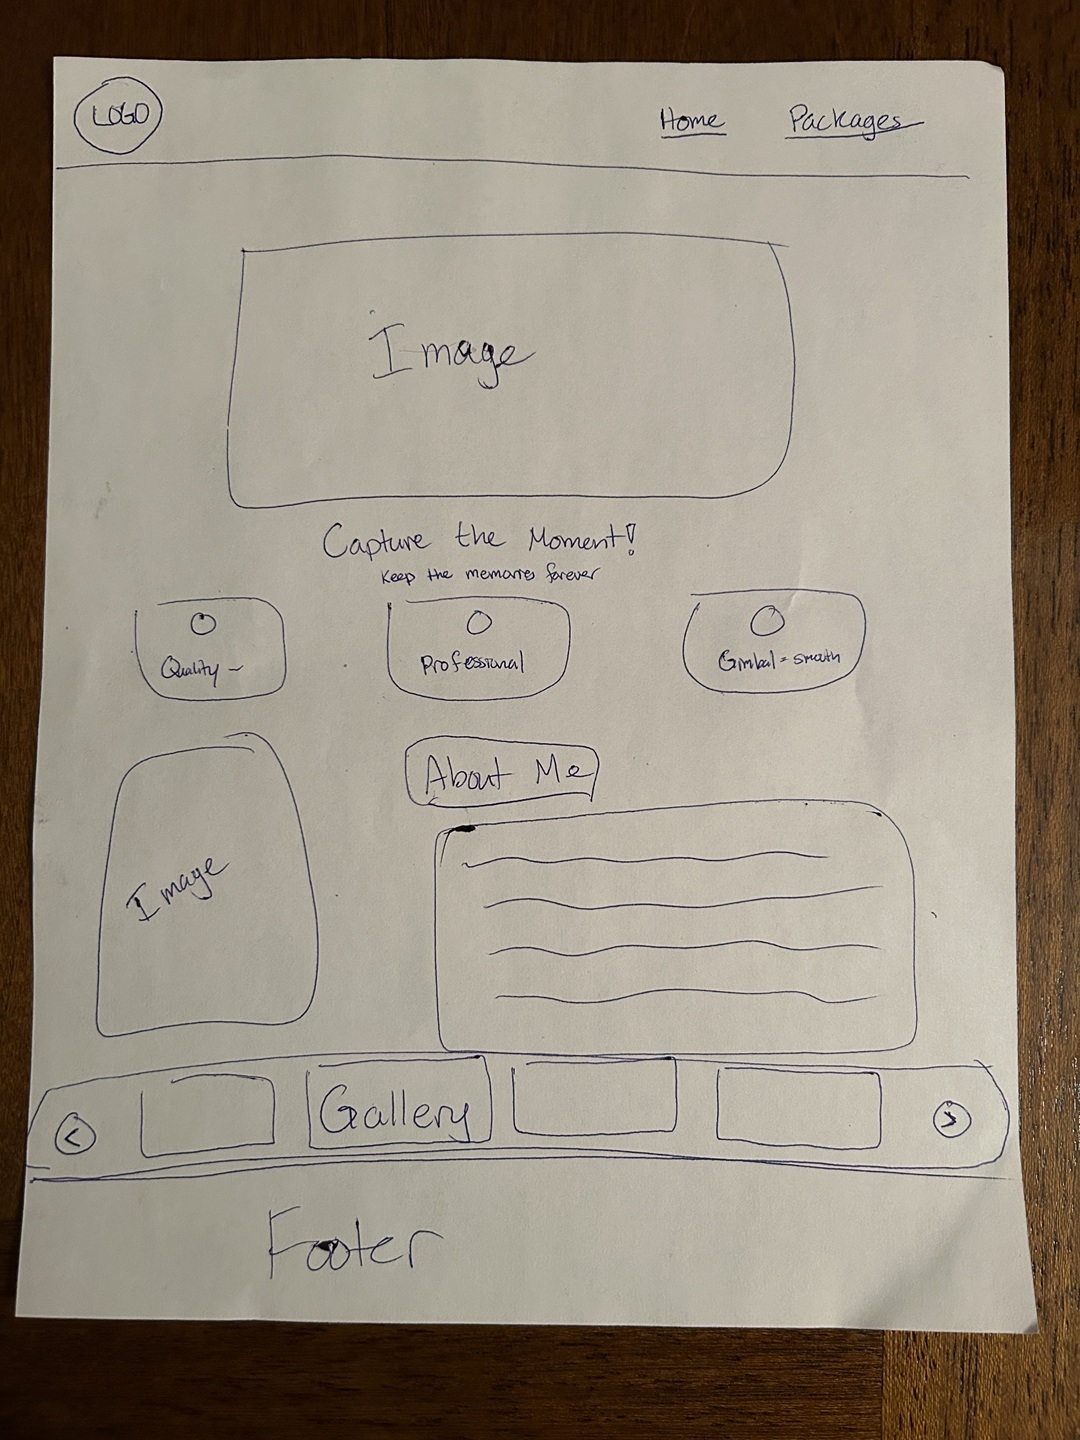 LOGO
Home Packages
Image
Capture the Moment!
Keep the memories forever
Quality -
Professional
Gimbal = smooth
About Me
Image
<
Gallery
>
Footer